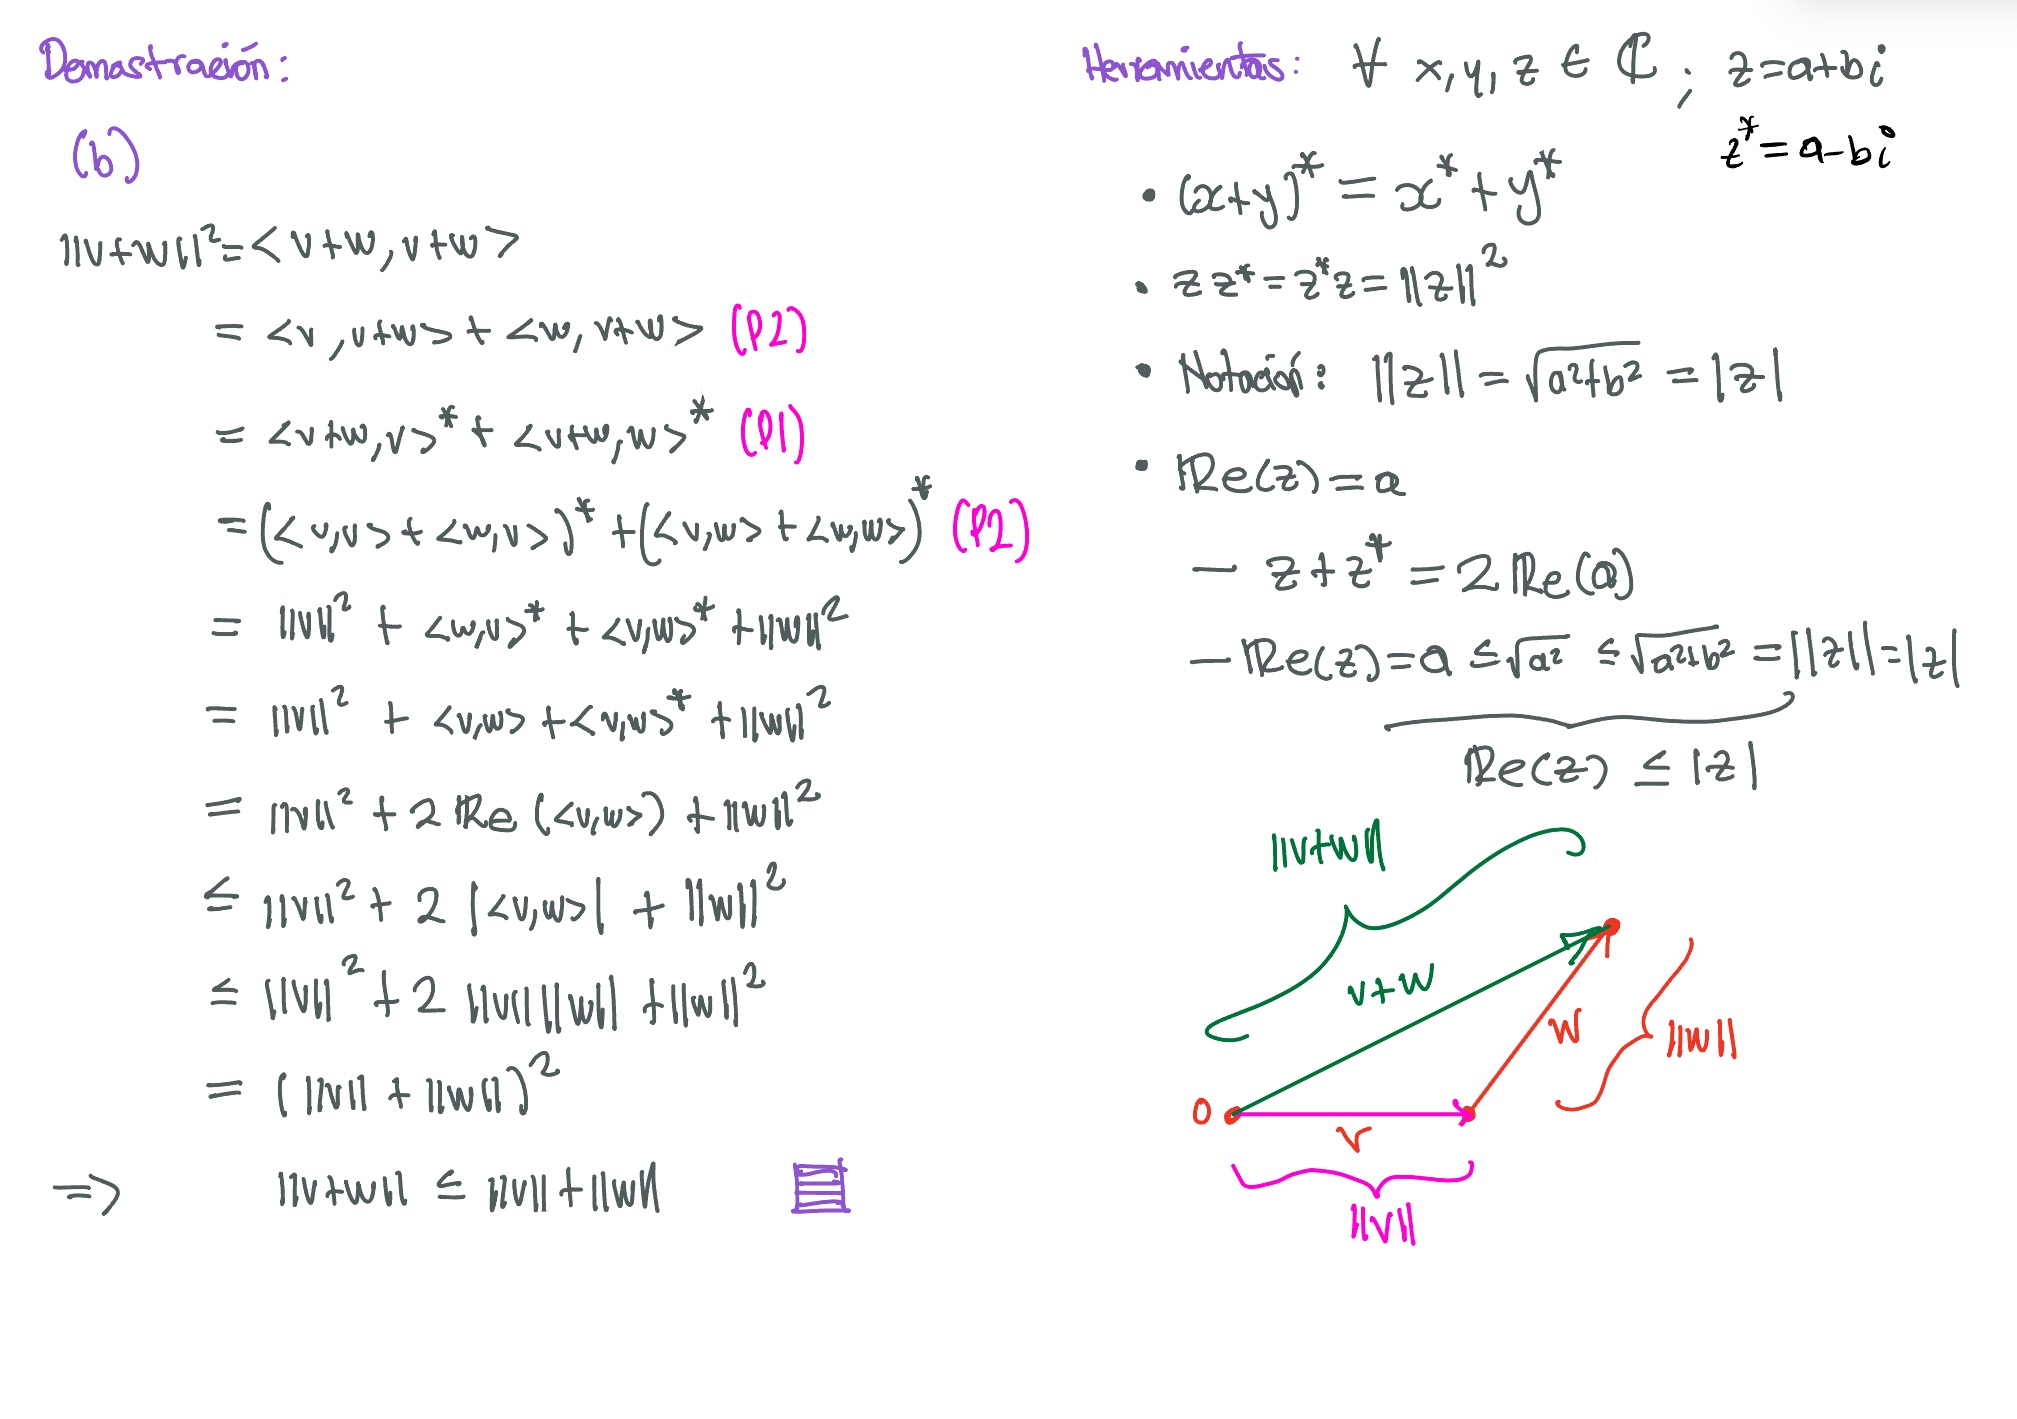 Demostración:
(b)
||v+w||²=<v+w,v+w>
= <v,v+w> + <w,v+w> (P2)
= <v+w,v>* + <v+w,w>* (P1)
=(<v,v> + <w,v>)* +(<v,w> + <w,w>)* (P2)
= ||v||² + <w,v>* + <v,w>* +||w||²
= ||v||² + <v,w> +<v,w>* +||w||²
= ||v||² + 2 Re (<v,w>) + ||w||²
≤ ||v||² + 2 |<v,w>| + ||w||²
≤ ||v||² + 2 ||v|| ||w|| + ||w||²
= (||v|| + ||w||)²
=> ||v+w|| ≤ ||v|| + ||w||
Herramientas: ∀ x,y,z ∈ ℂ ; z=a+bi
z*=a-bi
• (x+y)* = x* + y*
• zz* = z*z = ||z||²
• Notación: ||z|| = √a²+b² = |z|
• Re(z)=a
— z+z* = 2 Re(a)
— Re(z)=a ≤ √a² ≤ √a²+b² = ||z|| = |z|
Re(z) ≤ |z|
||v+w||
v+w
w
||w||
0
v
||v||